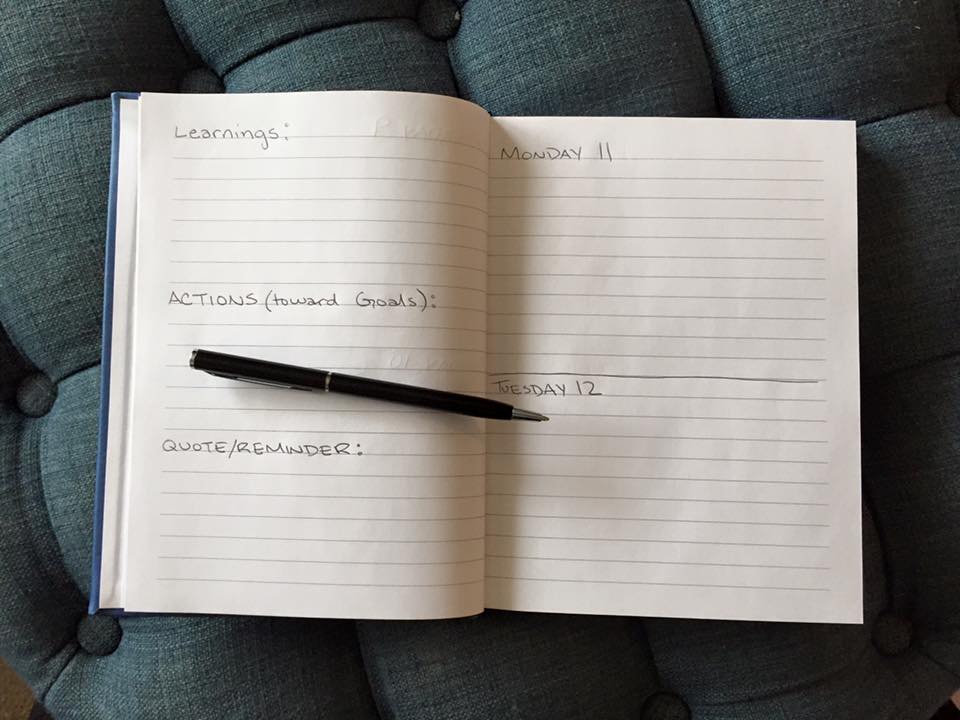 Learnings:
ACTIONS (toward Goals):
QUOTE/REMINDER:
MONDAY 11
TUESDAY 12